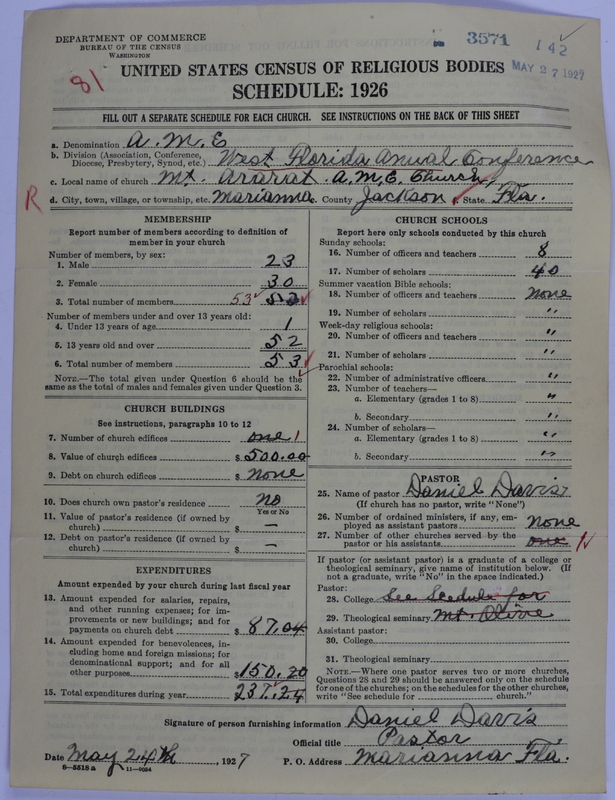 DEPARTMENT OF COMMERCE
BUREAU OF THE CENSUS
WASHINGTON
3571
142
MAY 27 1927
81
UNITED STATES CENSUS OF RELIGIOUS BODIES
SCHEDULE: 1926
FILL OUT A SEPARATE SCHEDULE FOR EACH CHURCH. SEE INSTRUCTIONS ON THE BACK OF THIS SHEET
a. Denomination A. M. E
b. Division (Association, Conference, Diocese, Presbytery, Synod, etc.) West Florida Annual Conference
c. Local name of church Mt. Ararat A.M.E. Church
R
d. City, town, village, or township, etc. Marianna e. County Jackson f. State Fla.
MEMBERSHIP
Report number of members according to definition of
member in your church
Number of members, by sex:
1. Male 23
2. Female 30
3. Total number of members 53
Number of members under and over 13 years old:
4. Under 13 years of age 1
5. 13 years old and over 52
6. Total number of members 53
NOTE.—The total given under Question 6 should be the
same as the total of males and females given under Question 3.
CHURCH BUILDINGS
See instructions, paragraphs 10 to 12
7. Number of church edifices one 1
8. Value of church edifices $ 500.00
9. Debt on church edifices $ None
10. Does church own pastor's residence No
Yes or No
11. Value of pastor's residence (if owned by
church) $ —
12. Debt on pastor's residence (if owned by
church) $ —
EXPENDITURES
Amount expended by your church during last fiscal year
13. Amount expended for salaries, repairs,
and other running expenses; for im-
provements or new buildings; and for
payments on church debt $ 87.04
14. Amount expended for benevolences, in-
cluding home and foreign missions; for
denominational support; and for all
other purposes $ 150.20
15. Total expenditures during year $ 237.24
CHURCH SCHOOLS
Report here only schools conducted by this church
Sunday schools:
16. Number of officers and teachers 8
17. Number of scholars 40
Summer vacation Bible schools:
18. Number of officers and teachers None
19. Number of scholars "
Week-day religious schools:
20. Number of officers and teachers "
21. Number of scholars "
Parochial schools:
22. Number of administrative officers "
23. Number of teachers—
a. Elementary (grades 1 to 8) "
b. Secondary "
24. Number of scholars—
a. Elementary (grades 1 to 8) "
b. Secondary "
PASTOR
25. Name of pastor Daniel Davis
(If church has no pastor, write "None")
26. Number of ordained ministers, if any, em-
ployed as assistant pastors None
27. Number of other churches served by the
pastor or his assistants one
If pastor (or assistant pastor) is a graduate of a college or
theological seminary, give name of institution below. (If
not a graduate, write "No" in the space indicated.)
Pastor:
28. College See Scedule for
29. Theological seminary Mt. Olive
Assistant pastor:
30. College
31. Theological seminary
NOTE.—Where one pastor serves two or more churches,
Questions 28 and 29 should be answered only on the schedule
for one of the churches; on the schedules for the other churches,
write "See schedule for ........ church."
Signature of person furnishing information Daniel Davis
Official title Pastor
Date May 24th, 1927 P. O. Address Marianna Fla.
8-5518 a 11-9034